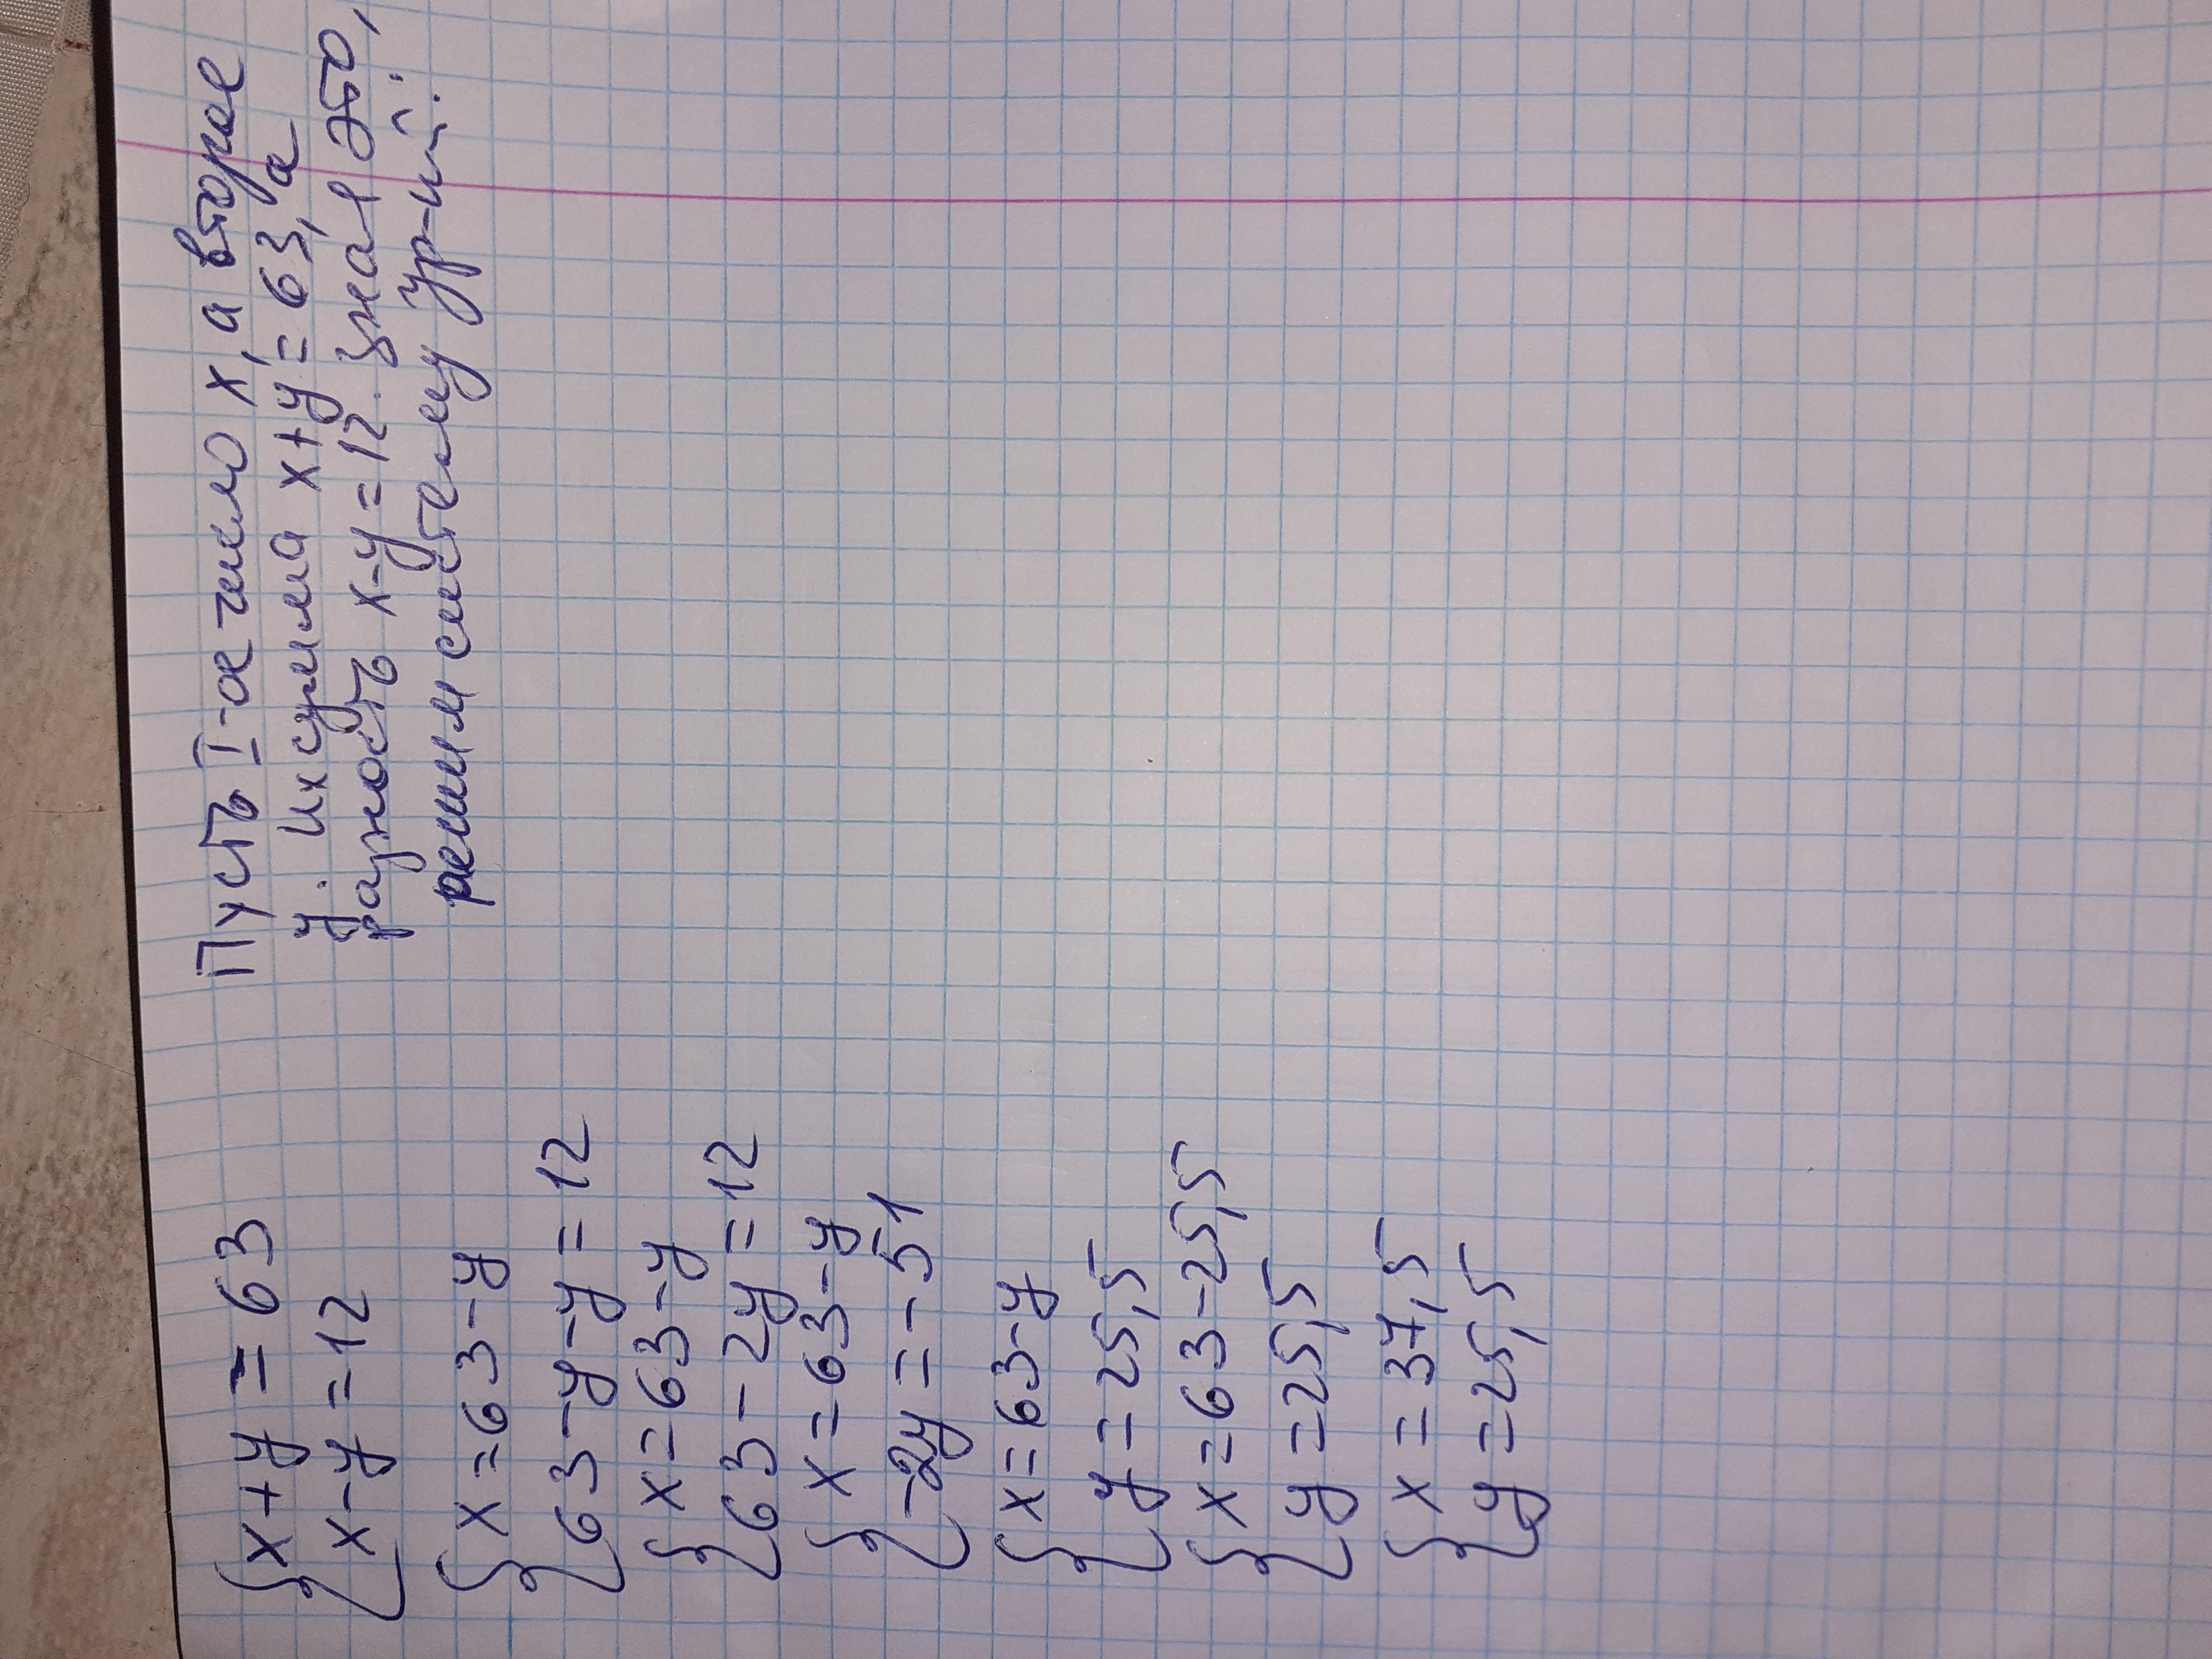 {x+y=63
x-y=12
Пусть I-ое число x, а второе
y. Их сумма x+y=63, а
разность x-y=12. Зная это,
решим систему ур-ий:
{x=63-y
63-y-y=12
{x=63-y
63-2y=12
{x=63-y
-2y=-51
{x=63-y
y=25,5
{x=63-25,5
y=25,5
{x=37,5
y=25,5